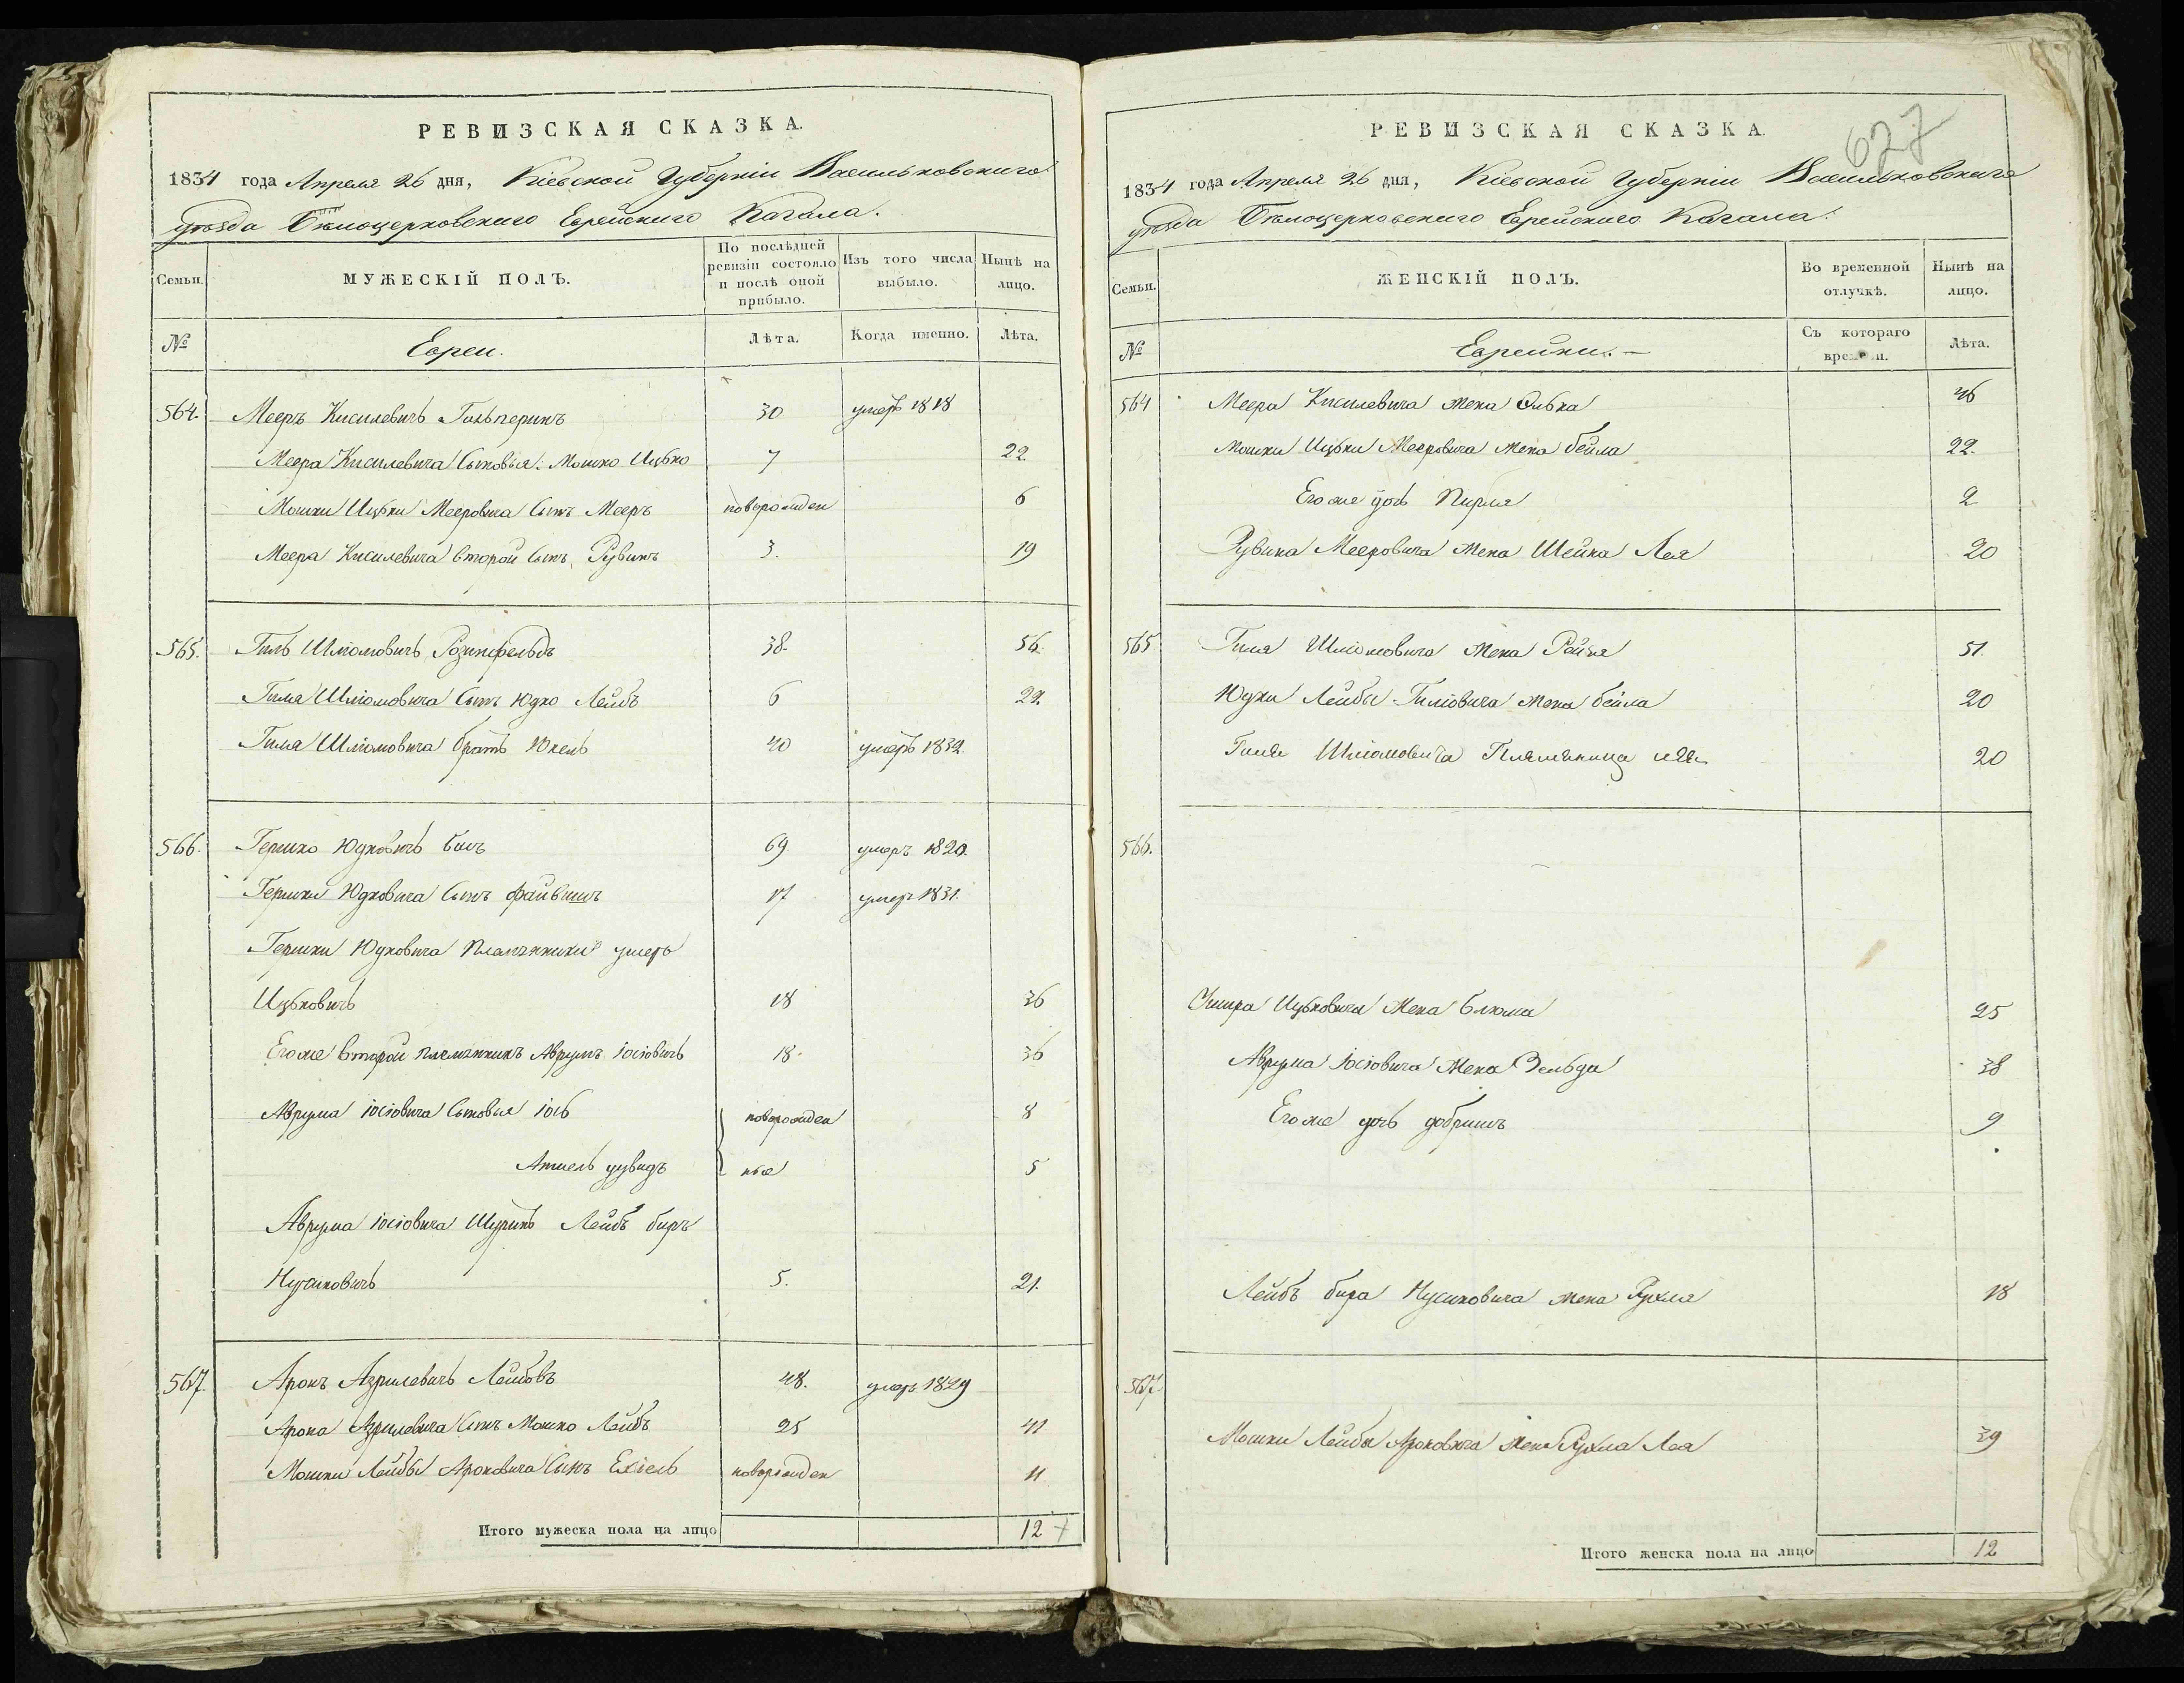 РЕВИЗСКАЯ СКАЗКА.
1834 года Апреля 26 дня, Кіевской Губерніи Васильковскаго
уѣзда Бѣлоцерковскаго Еврейскаго Кагала.
Семьи.
МУЖЕСКІЙ ПОЛЪ.
По послѣдней ревизіи состояло и послѣ оной прибыло.
Изъ того числа выбыло.
Нынѣ на лицо.
№
Евреи.
Лѣта.
Когда именно.
Лѣта.
564. Мееръ Кисилевичъ Гальперинъ 30 умеръ 1818
Меера Кисилевича Сыновья. Мошко Ицько 7 22.
Мошки Ицьки Мееровича Сынъ Мееръ новорожден 6
Меера Кисилевича второй Сынъ Рувинъ 3. 19
565. Гиль Шліомовичъ Розинфельдъ 38. 56.
Гиля Шліомовича Сынъ Юдко Лейбъ 6 22.
Гиля Шліомовича братъ Юкель 40 умеръ 1832.
566. Гершко Юдковичъ 69. умеръ 1820.
Гершки Юдковича Сынъ Файвишъ 17 умеръ 1831.
Гершки Юдковича Племянники
Ицьковичъ 18 36
Егоже второй племянникъ Аврумъ Іосіовичъ 18. 36
Аврума Іосіовича Сыновья Іось новорожден 8
Аншель ные 5
Аврума Іосіовича Шуринъ Лейбъ беръ
Нусиновичъ 5. 21.
567. Аронъ Азрилевичъ 48. умеръ 1829
Арона Азрилевича Сынъ Мошко Лейбъ 25 41
Мошки Лейбы Ароновича Сынъ Ехіель новорожден 11
Итого мужеска пола на лицо 12
627
РЕВИЗСКАЯ СКАЗКА.
1834 года Апреля 26 дня, Кіевской Губерніи Васильковскаго
уѣзда Бѣлоцерковскаго Еврейскаго Кагала.
Семьи.
ЖЕНСКІЙ ПОЛЪ.
Во временной отлучкѣ.
Нынѣ на лицо.
№
Еврейки.
Съ котораго времени.
Лѣта.
564 Меера Кисилевича жена 46
Мошки Ицьки Мееровича жена бейла 22.
Егоже дочь Перля 2
Рувина Мееровича жена Шейна Лея 20
565 Гиля Шліомовича жена Рейзя 51.
Юдки Лейбы Гиліовича жена бейла 20
Гиля Шліомовича Племяница 20
566.
Ицьковича жена блюма 25
Аврума Іосіовича жена Зельда 38
Егоже дочь добришъ 9
Лейбъ бера Нусиновича жена Рухля 18
567.
Мошки Лейбы Ароновича жена Рухля Лея 39
Итого женска пола на лицо 12